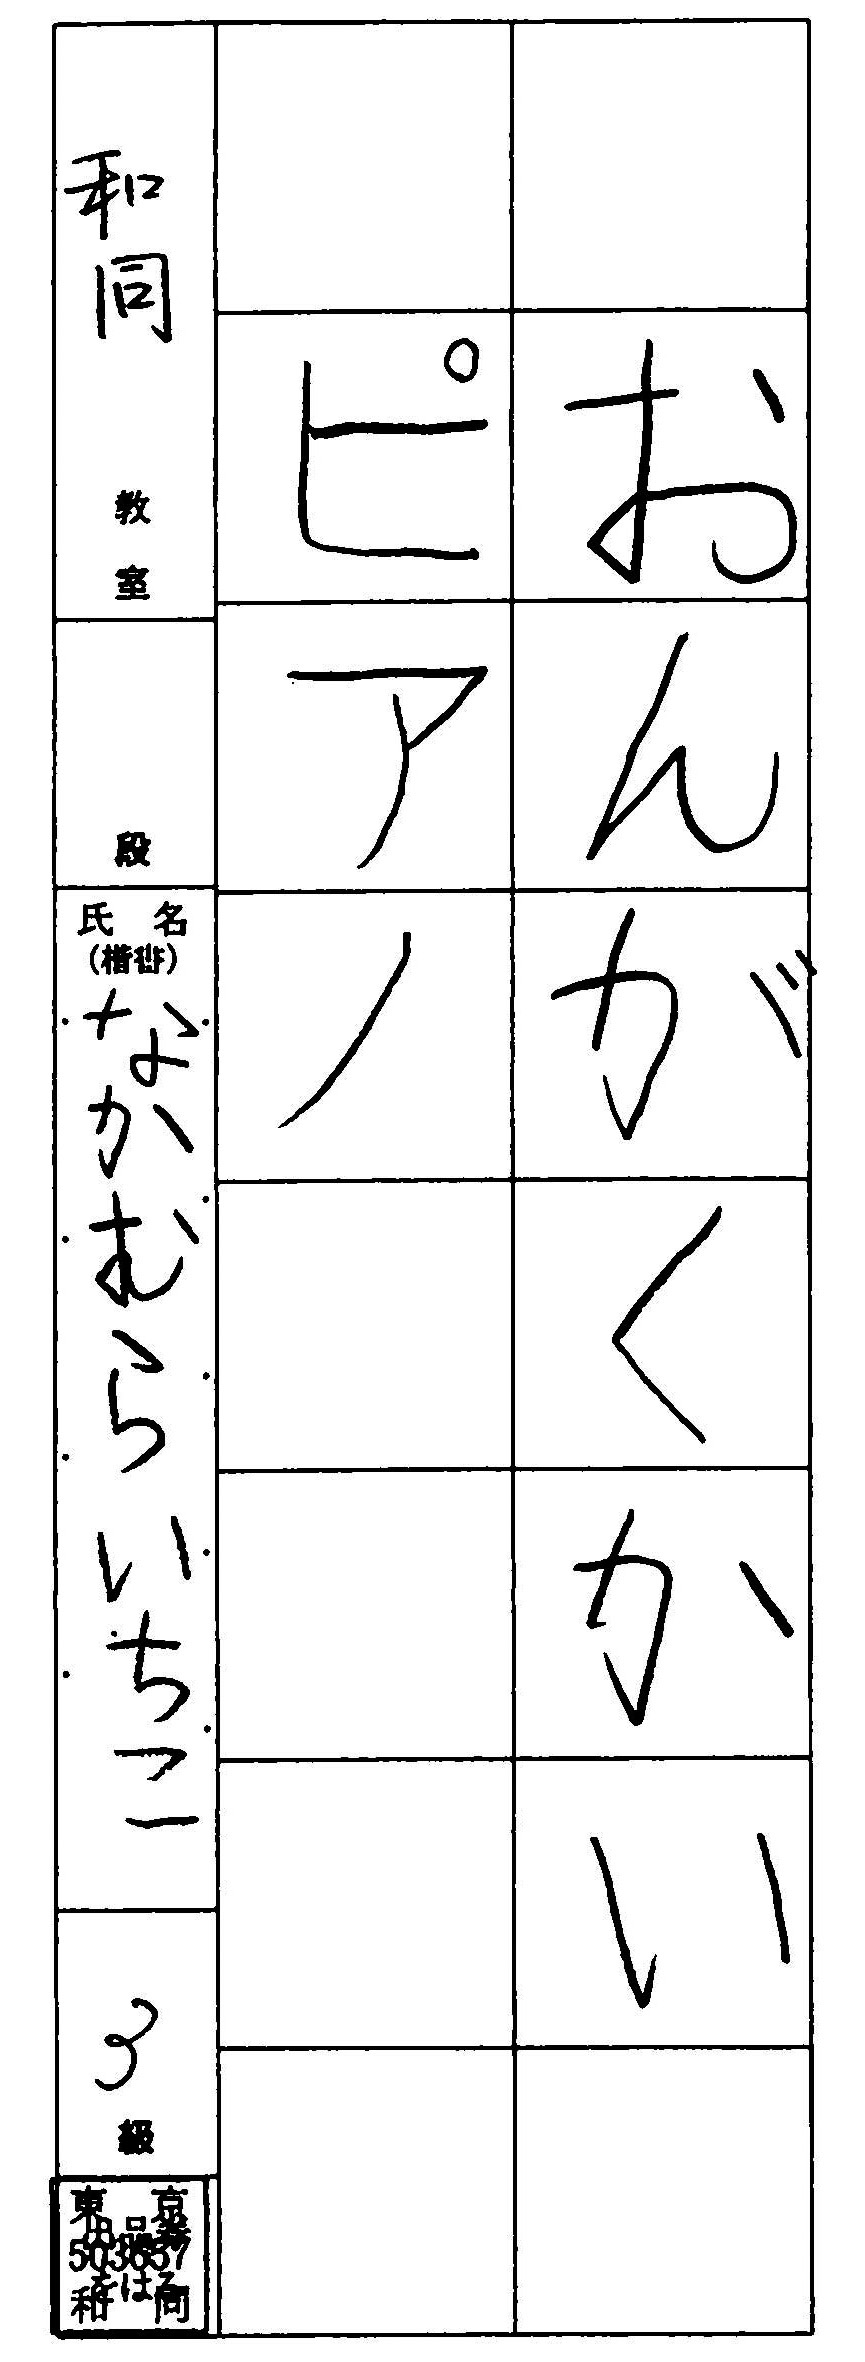 おんがくかい
ピアノ
和同教室
段
氏名
なかむらいちこ
3級
東京
503657
和同